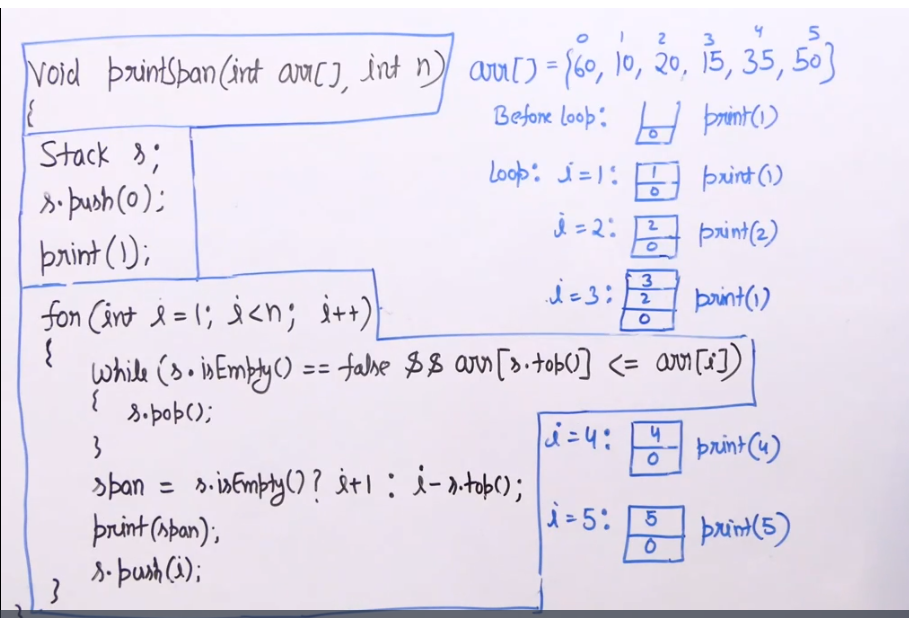 void printSpan(int arr[], int n)
{
Stack s;
s.push(0);
print(1);
for(int i=1; i<n; i++)
{
while(s.isEmpty() == false $$ arr[s.top()] <= arr[i])
{ s.pop();
}
span = s.isEmpty()? i+1 : i-s.top();
print(span);
s.push(i);
}
}
0 1 2 3 4 5
arr[] = {60, 10, 20, 15, 35, 50}
Before loop: 0 print(1)
Loop: i=1: 1 0 print(1)
i=2: 2 0 print(2)
i=3: 3 2 0 print(1)
i=4: 4 0 print(4)
i=5: 5 0 print(5)